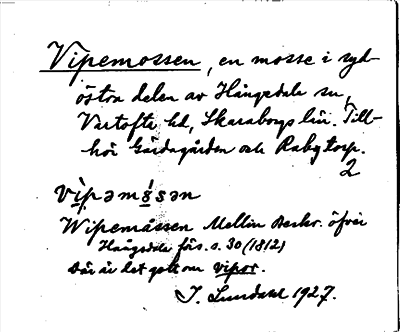 Vipemossen, en mosse i syd-
östra delen av Hångsdala sn,
Vartofta hd, Skaraborgs län. Till-
hör Gärdsgården och Rabytorp.
2
vìpəmɷ́sən
Wipemåssen Mellin Beskr. öfver
Hångsdala förs. s. 30 (1812)
Där är det gott om vipor.
J. Lundahl 1927.